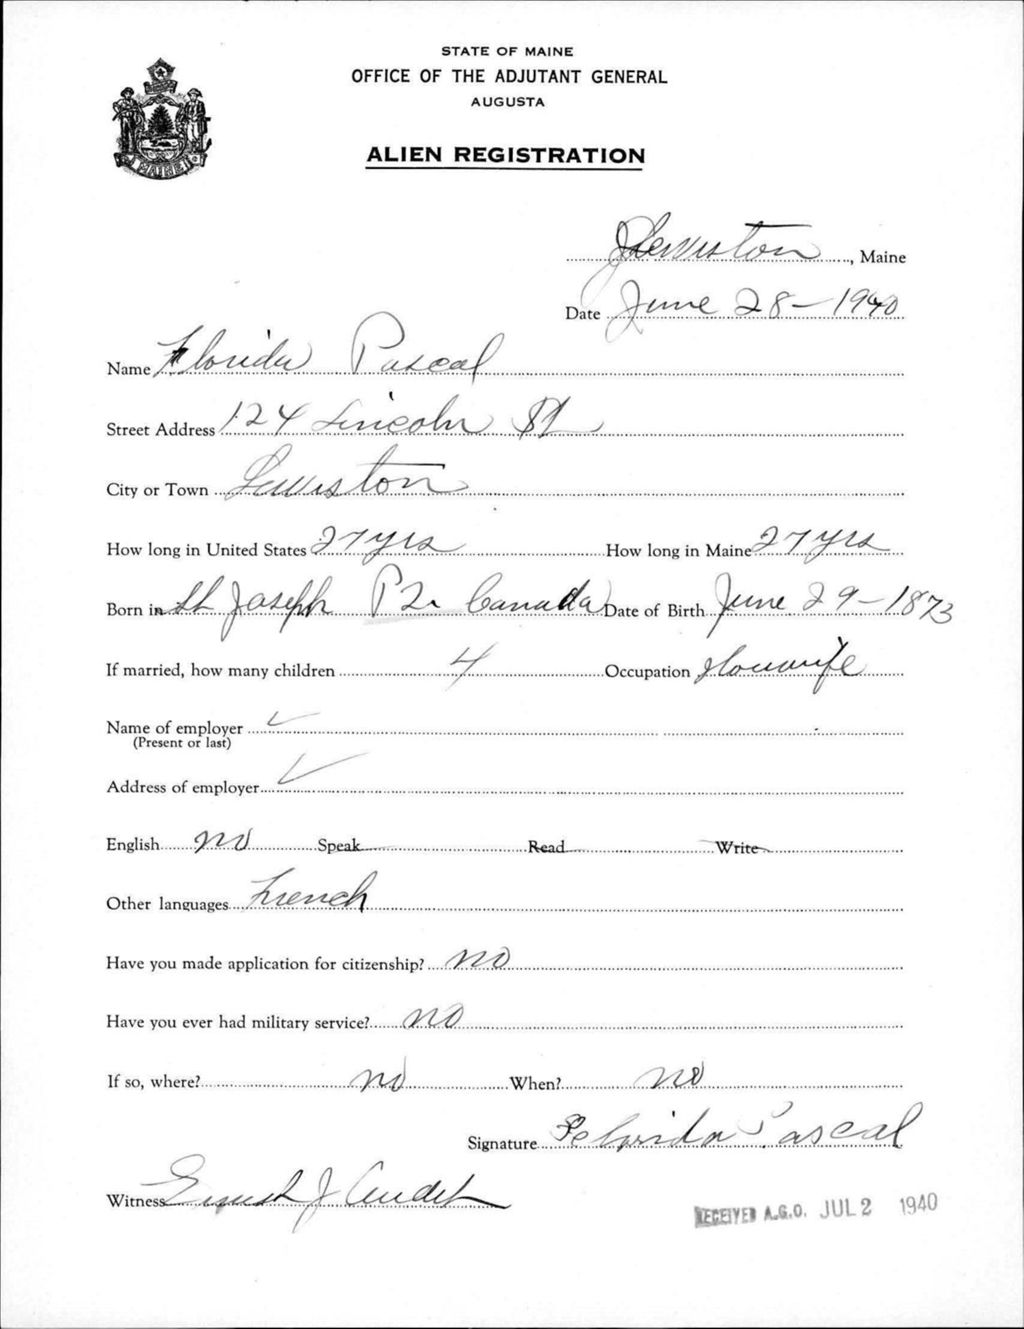 STATE OF MAINE
OFFICE OF THE ADJUTANT GENERAL
AUGUSTA
ALIEN REGISTRATION
MAINE
Lewiston, Maine
Date June 28 - 1940
Name Florida Pascal
Street Address 124 Lincoln St
City or Town Lewiston
How long in United States 27 yrs How long in Maine 27 yrs
Born in St Joseph P2 Canada Date of Birth June 29 - 1873
If married, how many children 4 Occupation Housewife
Name of employer ✓
(Present or last)
Address of employer ✓
English no Speak Read Write
Other languages French
Have you made application for citizenship? no
Have you ever had military service? no
If so, where? no When? no
Signature Pascal
Witness Ernest J Audet
RECEIVED A.G.O. JUL 2 1940